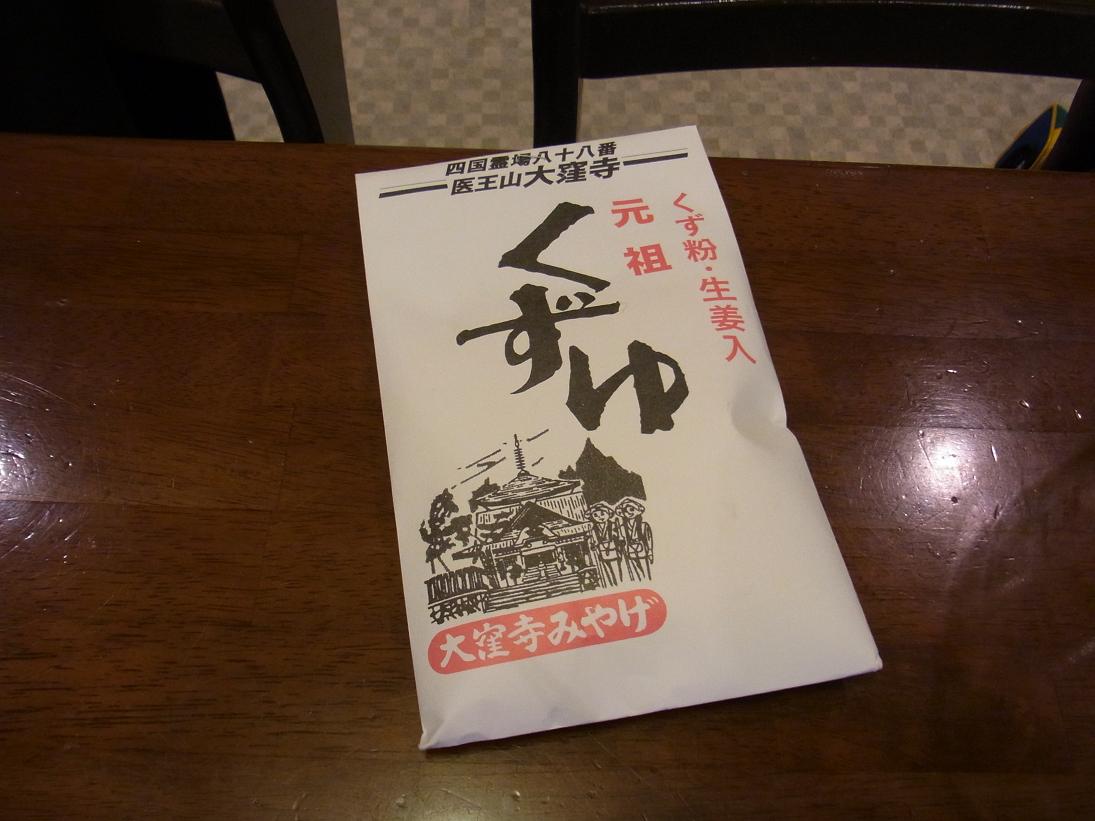 四国霊場八十八番
医王山大窪寺
くず粉・生姜入
元祖
くずゆ
大窪寺みやげ